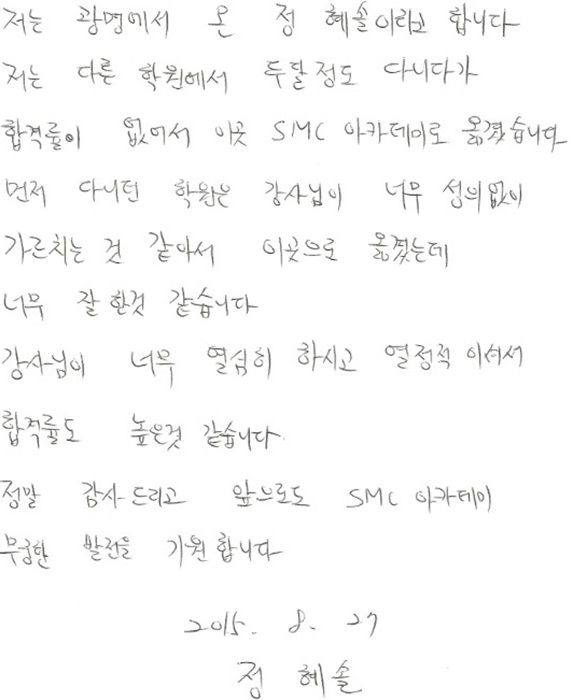 저는 광명에서 온 정 혜솔이라고 합니다
저는 다른 학원에서 두달정도 다니다가
합격률이 없어서 이곳 SMC 아카데미로 옮겼습니다
먼저 다니던 학원은 강사님이 너무 성의없이
가르치는 것 같아서 이곳으로 옮겼는데
너무 잘 한것 같습니다
강사님이 너무 열심히 하시고 열정적 이셔서
합격률도 높은것 같습니다
정말 감사드리고 앞으로도 SMC 아카데미
무궁한 발전을 기원합니다
2015. 8. 27
정 혜솔